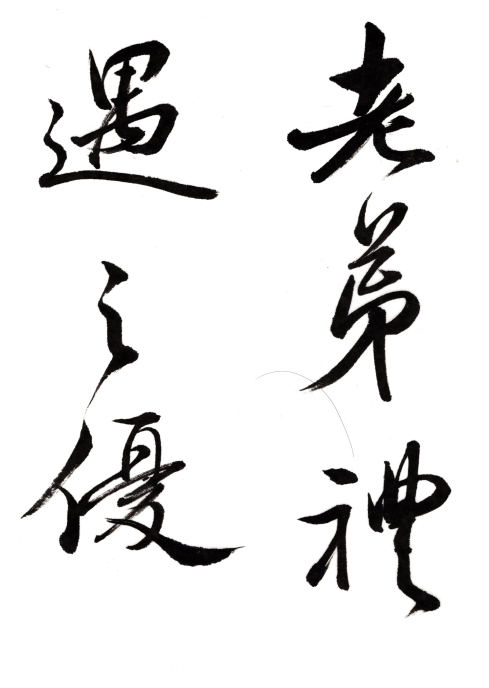 老弟禮
遇之優